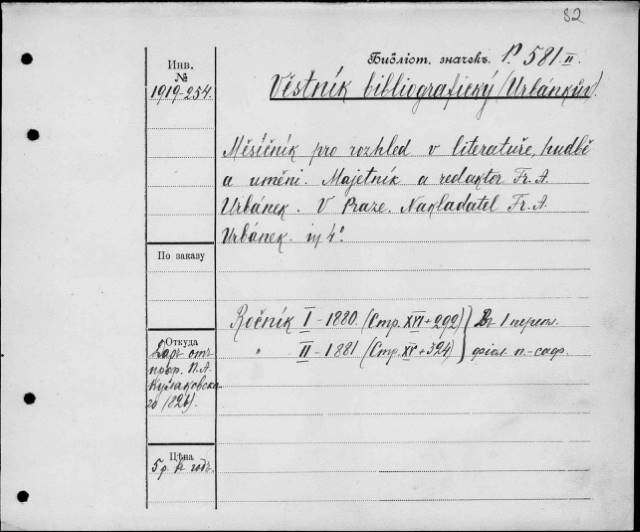 82
Библіот. значекъ. P 581 II.
Инв.
№
1919-254.
Věstník bibliografický (Urbánkův).
Měsíčník pro rozhled v literatuře, hudbě
a umění. Majetník a redaktor Fr. A.
Urbánek. V Praze. Nakladatel Fr. A.
Urbánek. in 4°.
По заказу
Ročník I - 1880. (Стр. XVI + 292) } Въ 1 перепл.
" II - 1881 (Стр. XV + 324) } фіол. п.-саф.
Откуда
Даръ отъ
проф. П. А.
Кулаковска-
го (1826).
Цѣна
5 р. въ годъ.